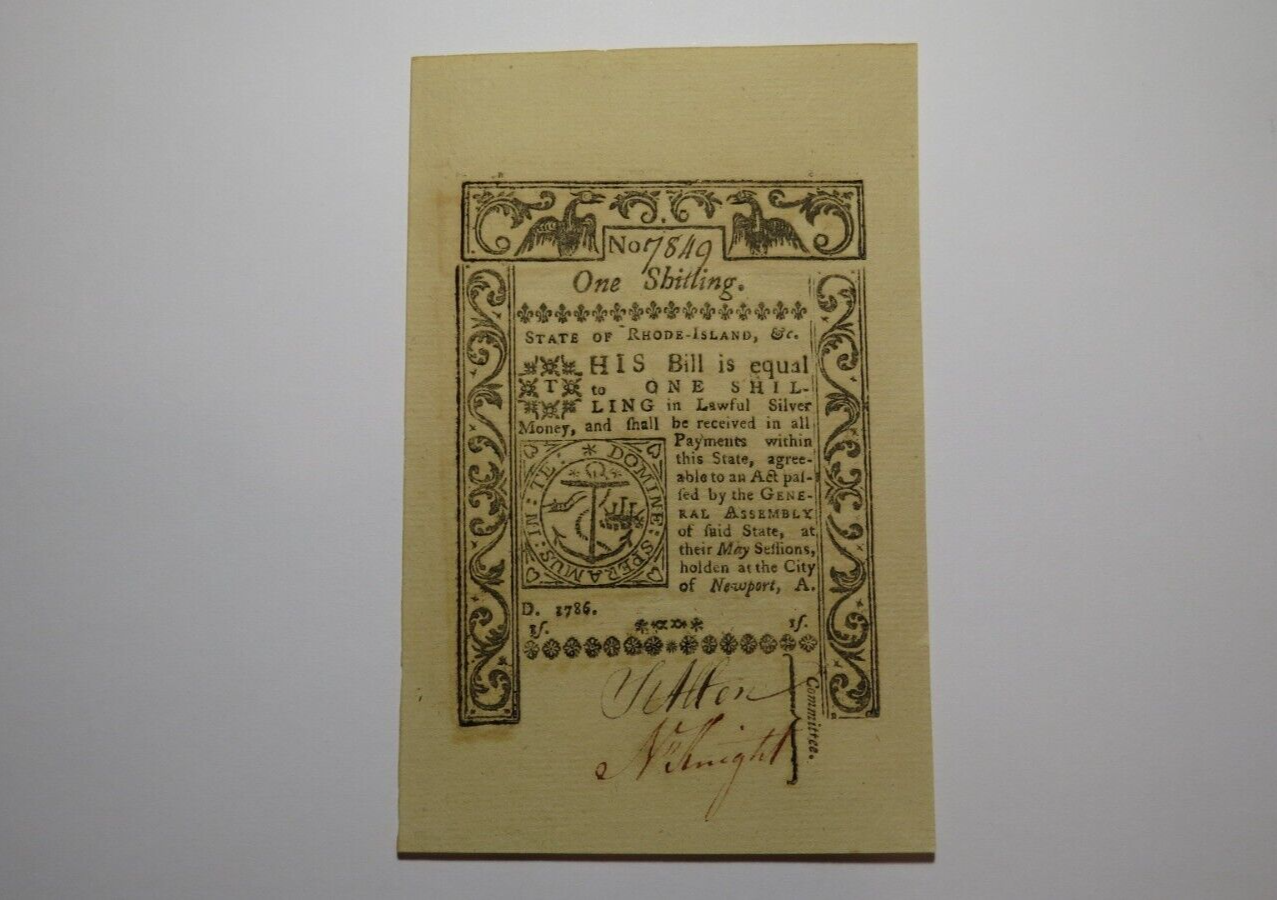 No 7849
One Shilling.
STATE OF RHODE-ISLAND, &c.
THIS Bill is equal
to ONE SHIL-
LING in Lawful Silver
Money, and ſhall be received in all
Payments within
this State, agree-
able to an Act paſ-
ſed by the GENE-
RAL ASSEMBLY
of ſaid State, at
their May Seſſions,
holden at the City
of Newport, A.
D. 1786.
1ſ. 1ſ.
IN : TE : DOMINE : SPERAMUS :
Knight
Committee.